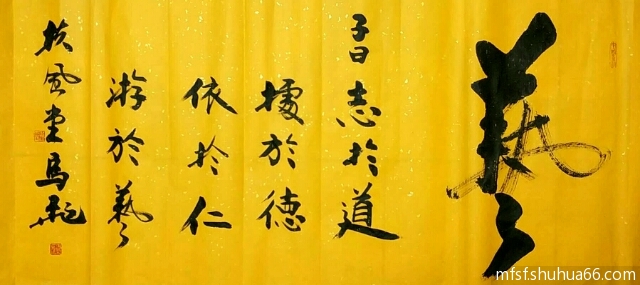 藝
子曰志於道
據於德
依於仁
游於藝
扶風堂馬
mfsf.shuhua66.com